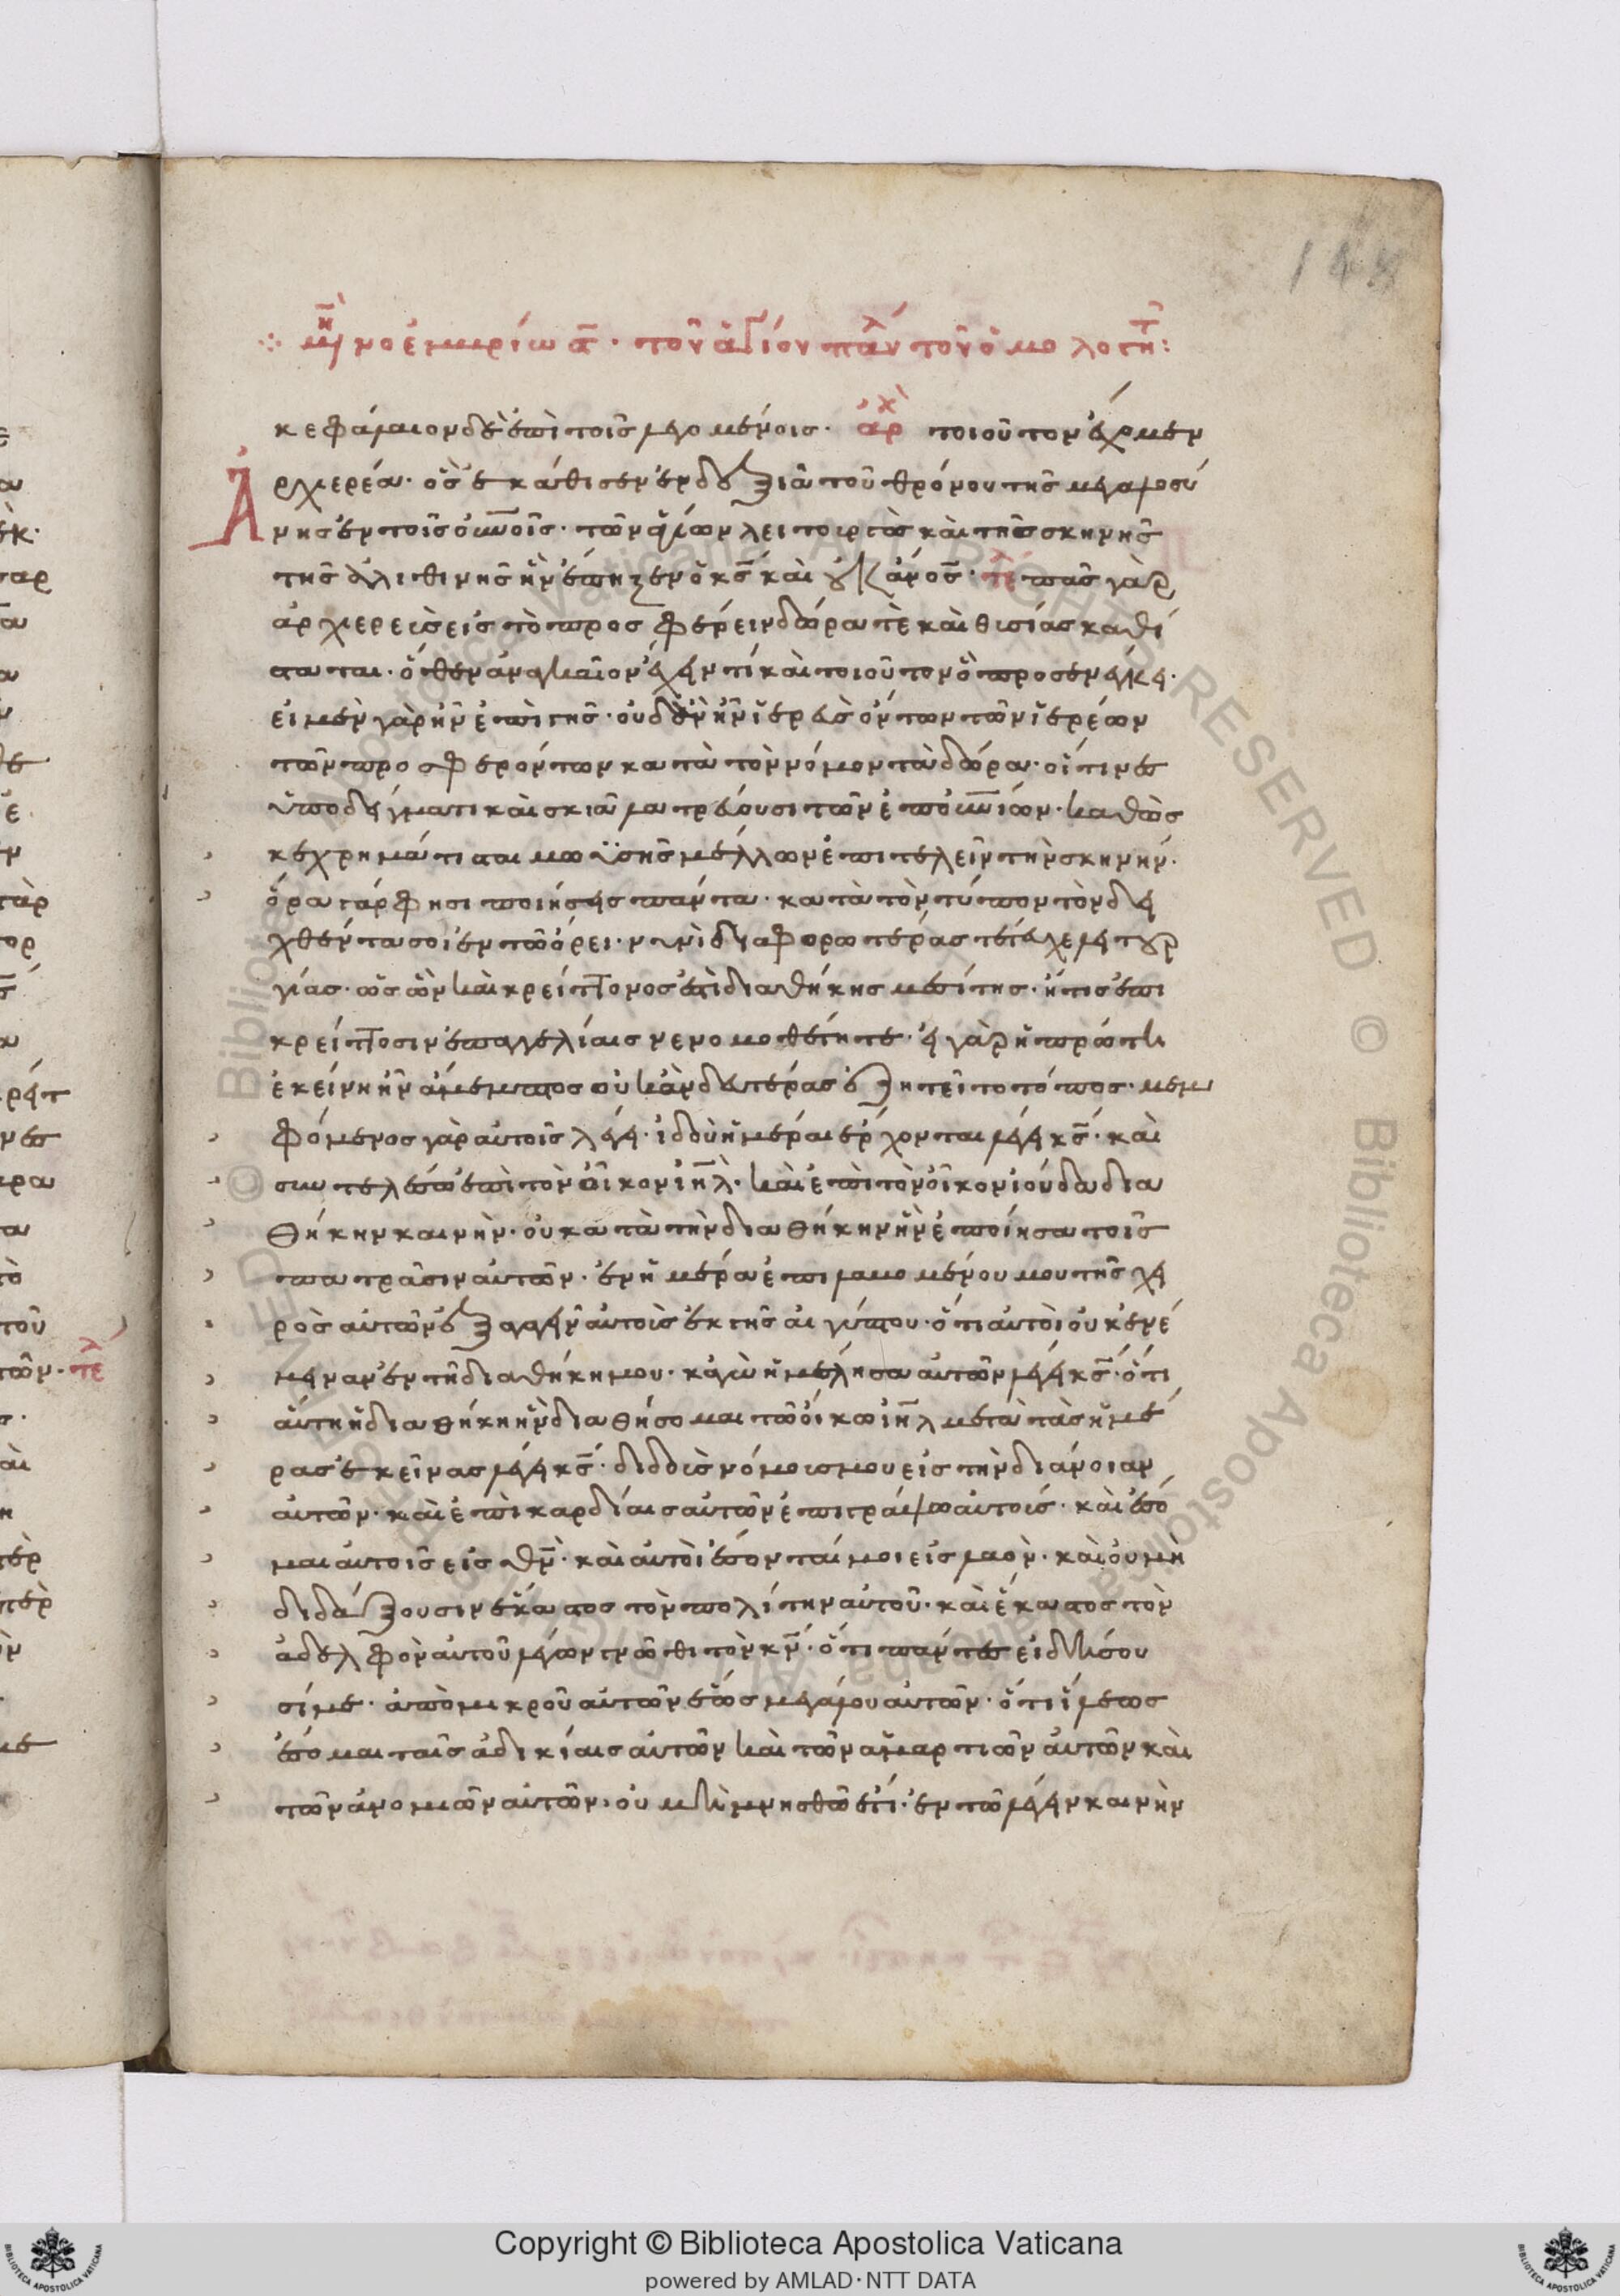 148
μη νοεμβρίω α. τοῦ ἁγίου παύλου τοῦ ὁμολογητ:
κεφάλαιον δὲ ἐπὶ τοῖς λεγομένοις. ἀρχ τοιοῦτον ἔχομεν
Ἀρχιερέα. ὃς ἐκάθισεν ἐν δεξιᾶ τοῦ θρόνου τῆς μεγαλοσύ
νης ἐν τοῖς οὐνοῖς. τῶν ἁγίων λειτουργὸς καὶ τῆς σκηνῆς
τῆς ἀλιθινῆς ἣν ἔπηξεν ὁ κς καὶ οὐκ ἄνος. τε πᾶς γὰρ
ἀρχιερεὺς εἰς τὸ προσφέρειν δῶρα τὲ καὶ θυσίας καθί
σταται. ὅθεν ἀναγκαῖον ἔχειν τί καὶ τοιοῦτον ὃ προσενέγκει.
εἰ μὲν γὰρ ἦν ἐπὶ γῆς. οὐδ' ἂν ἦν ἱερεὺς ὄντων τῶν ἱερέων
τῶν προσφερόντων κατὰ τὸν νόμον τὰ δῶρα. οἵτινες
ὑποδείγματι καὶ σκιᾶ λατρεύουσι τῶν ἐπουνίων. καθὼς
κεχρημάτισται μωϋσῆς μέλλων ἐπιτελεῖν τὴν σκηνήν.
ὅρα γάρ φησι ποιήσεις πάντα. κατὰ τὸν τύπον τὸν δει
χθέντα σοι ἐν τῶ ὄρει. νυνὶ διαφορωτέρας τέτυχε λειτουρ
γίας. ὅσω καὶ κρείττονος ἐστὶ διαθήκης μεσίτης. ἥτις ἐπι
κρείττοσιν ἐπαγγελίαις νενομοθέτητε. εἰ γὰρ ἡ πρώτη
ἐκείνη ἦν ἄμεμπτος οὐκ ἂν δευτέρας ἐζητεῖτο τόπος. μεμ
φόμενος γὰρ αὐτοῖς λέγει. ἰδοὺ ἡμέραι ἔρχονται λέγει κς. καὶ
συντελέσω ἐπὶ τὸν οἶκον ιηλ. καὶ ἐπὶ τὸν οἶκον ἰούδα δια
θήκην καινήν. οὐ κατὰ τὴν διαθήκην ἣν ἐποίησα τοῖς
πατράσιν αὐτῶν. ἐν ἡμέρα ἐπιλαμομένου μου τῆς χει
ρὸς αὐτῶν ἐξαγαγεῖν αὐτοὺς ἐκ γῆς αἰγύπτου. ὅτι αὐτοὶ οὐκ ἐνέ
μειναν ἐν τῆ διαθήκη μου. κἀγὼ ἠμέλησα αὐτῶν λέγει κς. ὅτι
αὕτη ἡ διαθήκη ἣν διαθήσομαι τῶ οἴκω ιηλ μετὰ τὰς ἡμέ
ρας ἐκείνας λέγει κς. διδοὺς νόμους μου εἰς τὴν διάνοιαν
αὐτῶν. καὶ ἐπὶ καρδίαις αὐτῶν ἐπιγράψω αὐτούς. καὶ ἔσο
μαι αὐτοῖς εἰς θν. καὶ αὐτοὶ ἔσονταί μοι εἰς λαόν. καὶ οὐ μὴ
διδάξουσιν ἕκαστος τὸν πολίτην αὐτοῦ. καὶ ἕκαστος τὸν
ἀδελφὸν αὐτοῦ λέγων γνῶθι τὸν κν. ὅτι πάντες εἰδήσου
σί με. ἀπὸ μικροῦ αὐτῶν ἕως μεγάλου αὐτῶν. ὅτι ἵλεως
ἔσομαι ταῖς ἀδικίαις αὐτῶν καὶ τῶν ἁμαρτιῶν αὐτῶν καὶ
τῶν ἀνομιῶν αὐτῶν. οὐ μὴ μνησθῶ ἔτι. ἐν τῶ λέγειν καινὴν
Copyright © Biblioteca Apostolica Vaticana
powered by AMLAD·NTT DATA